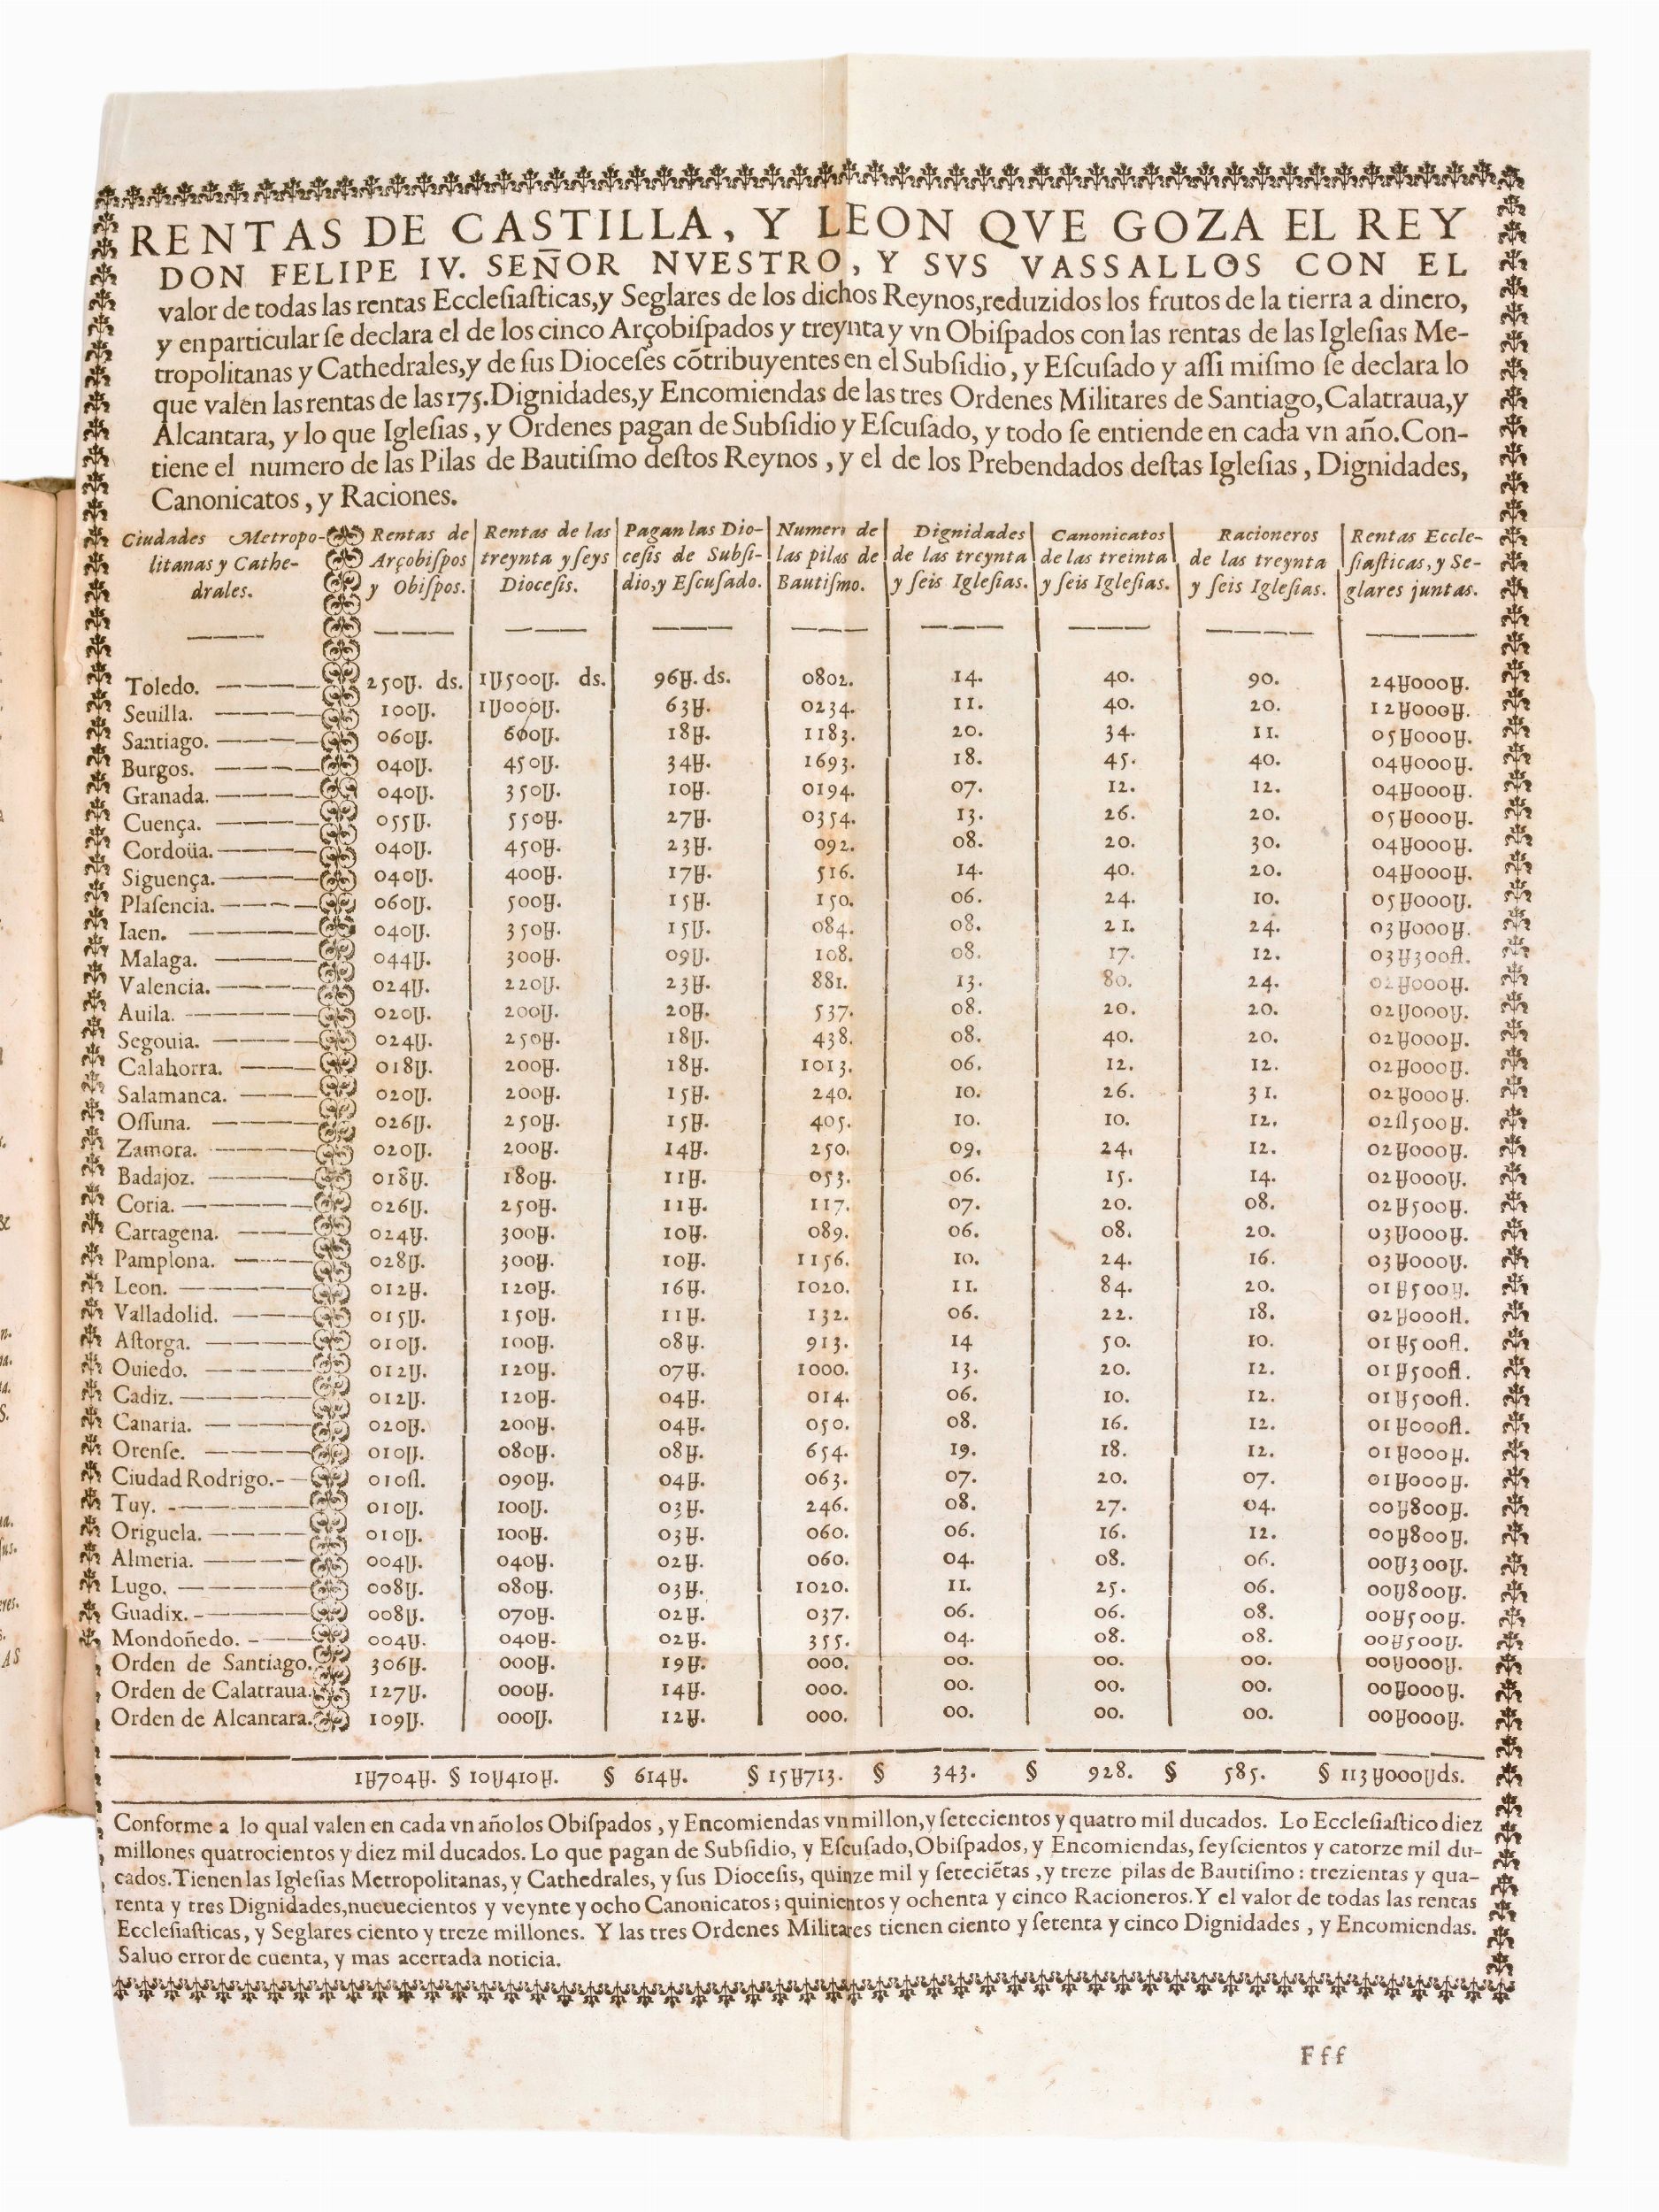 RENTAS DE CASTILLA, Y LEON QVE GOZA EL REY
DON FELIPE IV. SEÑOR NVESTRO, Y SVS VASSALLOS CON EL
valor de todas las rentas Ecclesiasticas, y Seglares de los dichos Reynos, reduzidos los frutos de la tierra a dinero,
y en particular se declara el de los cinco Arçobispados y treynta y vn Obispados con las rentas de las Iglesias Me-
tropolitanas y Cathedrales, y de sus Dioceses cõtribuyentes en el Subsidio, y Escusado y assi mismo se declara lo
que valen las rentas de las 175. Dignidades, y Encomiendas de las tres Ordenes Militares de Santiago, Calatraua, y
Alcantara, y lo que Iglesias, y Ordenes pagan de Subsidio y Escusado, y todo se entiende en cada vn año. Con-
tiene el numero de las Pilas de Bautismo destos Reynos, y el de los Prebendados destas Iglesias, Dignidades,
Canonicatos, y Raciones.
Ciudades Metropo- Rentas de Rentas de las Pagan las Dio- Numero de Dignidades Canonicatos Racioneros Rentas Eccle-
litanas y Cathe- Arçobispos treynta y seys cesis de Subsi- las pilas de de las treynta de las treinta de las treynta siasticas, y Se-
drales. y Obispos. Diocesis. dio, y Escusado. Bautismo. y seis Iglesias. y seis Iglesias. y seis Iglesias. glares juntas.
Toledo. 250U. ds. 1U500U. ds. 96U. ds. 0802. 14. 40. 90. 24U000U.
Seuilla. 100U. 1U000U. 63U. 0234. 11. 40. 20. 12U000U.
Santiago. 060U. 600U. 18U. 1183. 20. 34. 11. 05U000U.
Burgos. 040U. 450U. 34U. 1693. 18. 45. 40. 04U000U.
Granada. 040U. 350U. 10U. 0194. 07. 12. 12. 04U000U.
Cuença. 055U. 550U. 27U. 0354. 13. 26. 20. 05U000U.
Cordoüa. 040U. 450U. 23U. 092. 08. 20. 30. 04U000U.
Siguença. 040U. 400U. 17U. 516. 14. 40. 20. 04U000U.
Plasencia. 060U. 500U. 15U. 150. 06. 24. 10. 05U000U.
Iaen. 040U. 350U. 15U. 084. 08. 21. 24. 03U000U.
Malaga. 044U. 300U. 09U. 108. 08. 17. 12. 03U300U.
Valencia. 024U. 220U. 23U. 881. 13. 80. 24. 02U000U.
Auila. 020U. 200U. 20U. 537. 08. 20. 20. 02U000U.
Segouia. 024U. 250U. 18U. 438. 08. 40. 20. 02U000U.
Calahorra. 018U. 200U. 18U. 1013. 06. 12. 12. 02U000U.
Salamanca. 020U. 200U. 15U. 240. 10. 26. 31. 02U000U.
Ossuna. 026U. 250U. 15U. 405. 10. 10. 12. 02U500U.
Zamora. 020U. 200U. 14U. 250. 09. 24. 12. 02U000U.
Badajoz. 018U. 180U. 11U. 053. 06. 15. 14. 02U000U.
Coria. 026U. 250U. 11U. 117. 07. 20. 08. 02U500U.
Cartagena. 024U. 300U. 10U. 089. 06. 08. 20. 03U000U.
Pamplona. 028U. 300U. 10U. 1156. 10. 24. 16. 03U000U.
Leon. 012U. 120U. 16U. 1020. 11. 84. 20. 01U500U.
Valladolid. 015U. 150U. 11U. 132. 06. 22. 18. 02U000U.
Astorga. 010U. 100U. 08U. 913. 14 50. 10. 01U500U.
Ouiedo. 012U. 120U. 07U. 1000. 13. 20. 12. 01U500U.
Cadiz. 012U. 120U. 04U. 014. 06. 10. 12. 01U500U.
Canaria. 020U. 200U. 04U. 050. 08. 16. 12. 01U000U.
Orense. 010U. 080U. 08U. 654. 19. 18. 12. 01U000U.
Ciudad Rodrigo. 010U. 090U. 04U. 063. 07. 20. 07. 01U000U.
Tuy. 010U. 100U. 03U. 246. 08. 27. 04. 00U800U.
Origuela. 010U. 100U. 03U. 060. 06. 16. 12. 00U800U.
Almeria. 004U. 040U. 02U. 060. 04. 08. 06. 00U300U.
Lugo. 008U. 080U. 03U. 1020. 11. 25. 06. 00U800U.
Guadix. 008U. 070U. 02U. 037. 06. 06. 08. 00U500U.
Mondoñedo. 004U. 040U. 02U. 355. 04. 08. 08. 00U500U.
Orden de Santiago. 306U. 000U. 19U. 000. 00. 00. 00. 00U000U.
Orden de Calatraua. 127U. 000U. 14U. 000. 00. 00. 00. 00U000U.
Orden de Alcantara. 109U. 000U. 12U. 000. 00. 00. 00. 00U000U.
1U704U. § 10U410U. § 614U. § 15U713. § 343. § 928. § 585. § 113U000U ds.
Conforme a lo qual valen en cada vn año los Obispados, y Encomiendas vn millon, y setecientos y quatro mil ducados. Lo Ecclesiastico diez
millones quatrocientos y diez mil ducados. Lo que pagan de Subsidio, y Escusado, Obispados, y Encomiendas, seyscientos y catorze mil du-
cados. Tienen las Iglesias Metropolitanas, y Cathedrales, y sus Diocesis, quinze mil y seteciẽtas, y treze pilas de Bautismo: trezientas y qua-
renta y tres Dignidades, nueuecientos y veynte y ocho Canonicatos; quinientos y ochenta y cinco Racioneros. Y el valor de todas las rentas
Ecclesiasticas, y Seglares ciento y treze millones. Y las tres Ordenes Militares tienen ciento y setenta y cinco Dignidades, y Encomiendas.
Saluo error de cuenta, y mas acertada noticia.
Fff